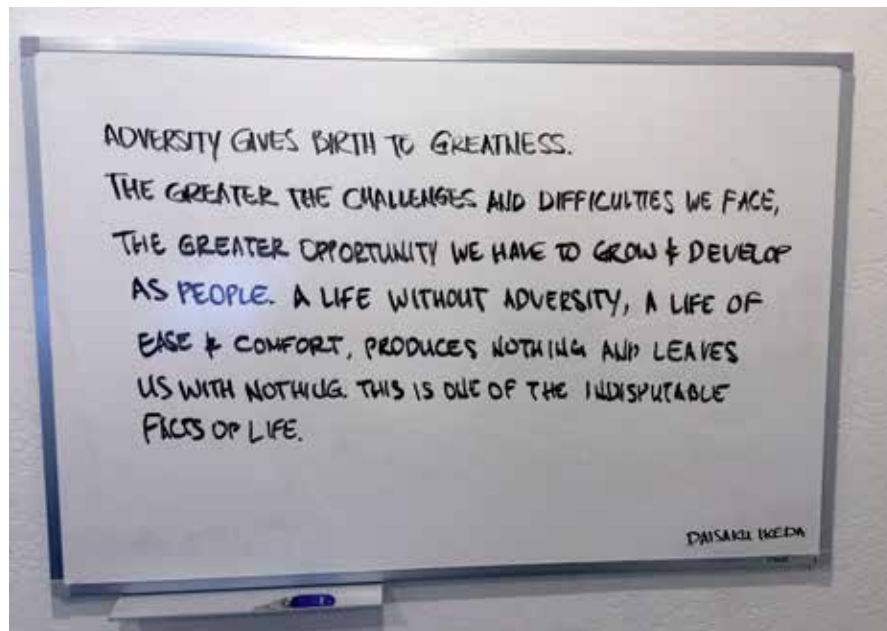 ADVERSITY GIVES BIRTH TO GREATNESS.
THE GREATER THE CHALLENGES AND DIFFICULTIES WE FACE,
THE GREATER OPPORTUNITY WE HAVE TO GROW & DEVELOP
AS PEOPLE. A LIFE WITHOUT ADVERSITY, A LIFE OF
EASE & COMFORT, PRODUCES NOTHING AND LEAVES
US WITH NOTHING. THIS IS ONE OF THE INDISPUTABLE
FACTS OF LIFE.
DAISAKU IKEDA